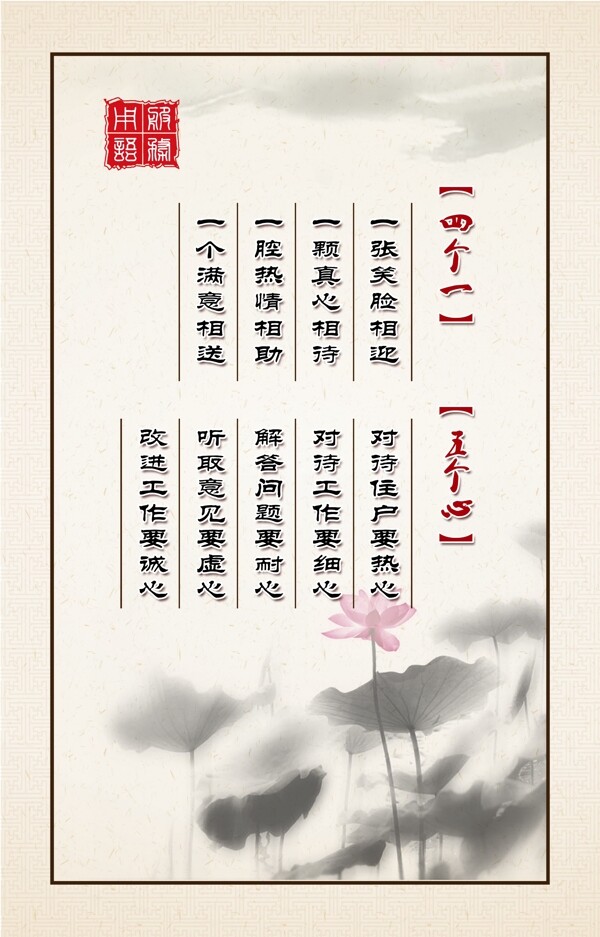 【四个一】
一张笑脸相迎
一颗真心相待
一腔热情相助
一个满意相送
【五个心】
对待住户要热心
对待工作要细心
解答问题要耐心
听取意见要虚心
改进工作要诚心